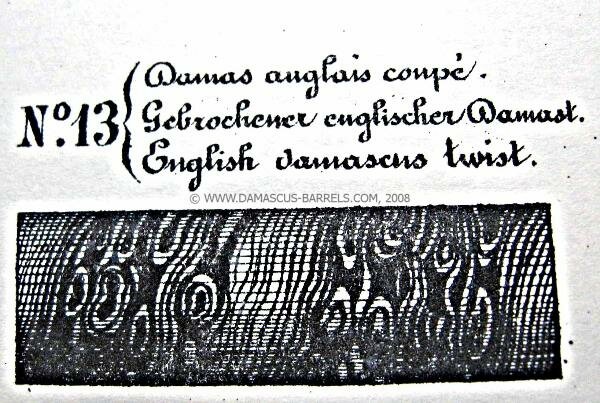 Nº.13
Damas anglais coupé.
Gebrochener englischer Damast.
English damascus twist.
© WWW.DAMASCUS-BARRELS.COM, 2008